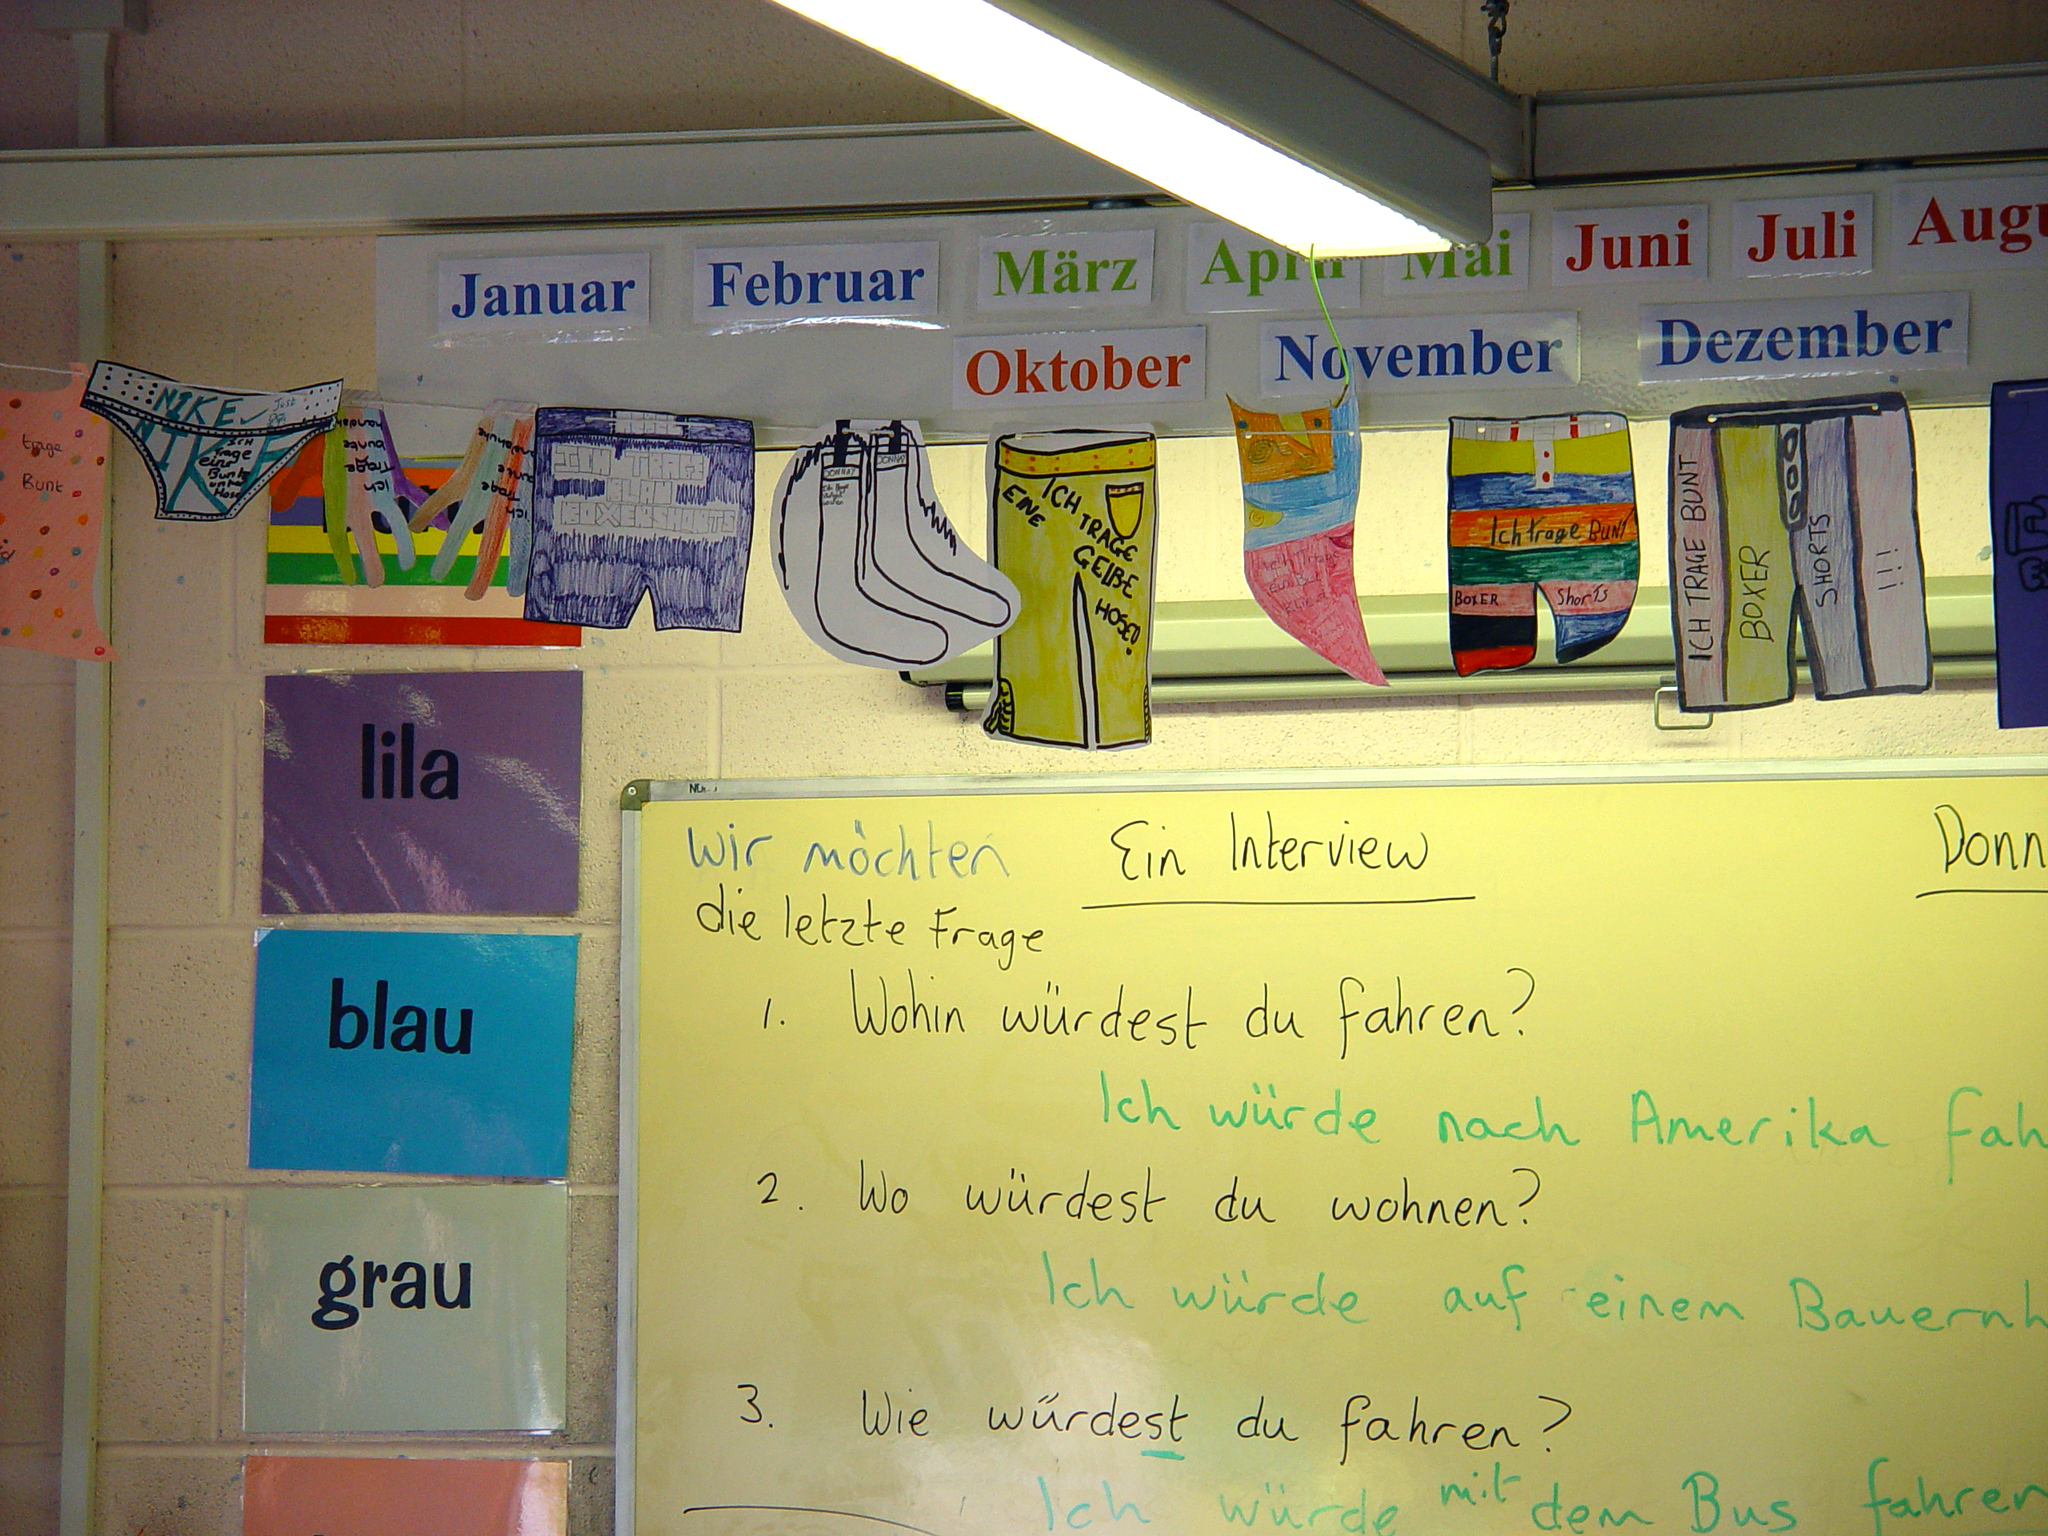 Januar Februar März April Mai Juni Juli Augu
Oktober November Dezember
trage
Bunt
NIKE Just
Ich
trage
eine
Bunt
unter
Hose
ICH TRAGE
BLAU
BOXERSHORTS
ICH TRAGE
EINE GELBE
HOSE!
Ich trage BUNT
BOXER Shorts
ICH TRAGE BUNT
BOXER
SHORTS
!!!
lila
blau
grau
Wir möchten Ein Interview Donn
die letzte Frage
1. Wohin würdest du fahren?
Ich würde nach Amerika fah
2. Wo würdest du wohnen?
Ich würde auf einem Bauernh
3. Wie würdest du fahren?
Ich würde mit dem Bus fahren